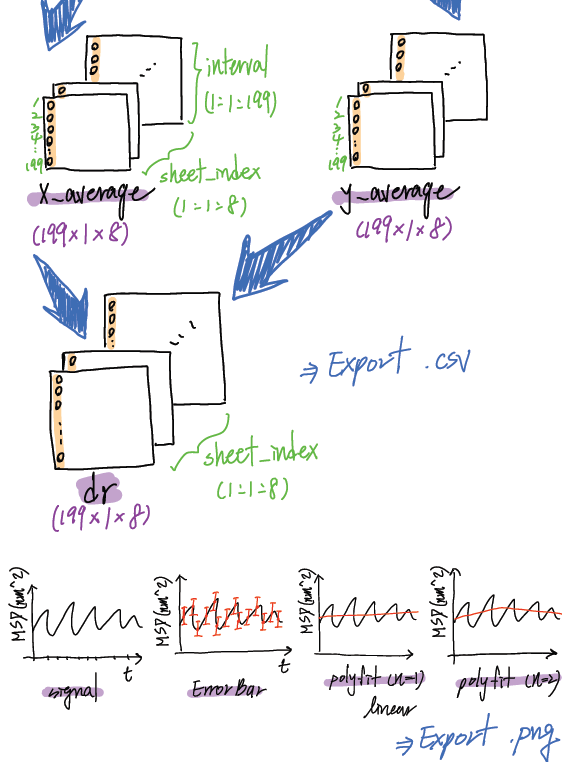 interval
(1:1:199)
1
2
3
4
...
199
1
2
3
4
...
199
sheet_index
(1:1:8)
x_average
(199×1×8)
y_average
(199×1×8)
⇒ Export .csv
sheet_index
(1:1:8)
dr
(199×1×8)
MSD(nm^2)
t
signal
MSD(nm^2)
t
ErrorBar
MSD(nm^2)
polyfit (n=1)
linear
MSD(nm^2)
polyfit (n=2)
⇒ Export .png